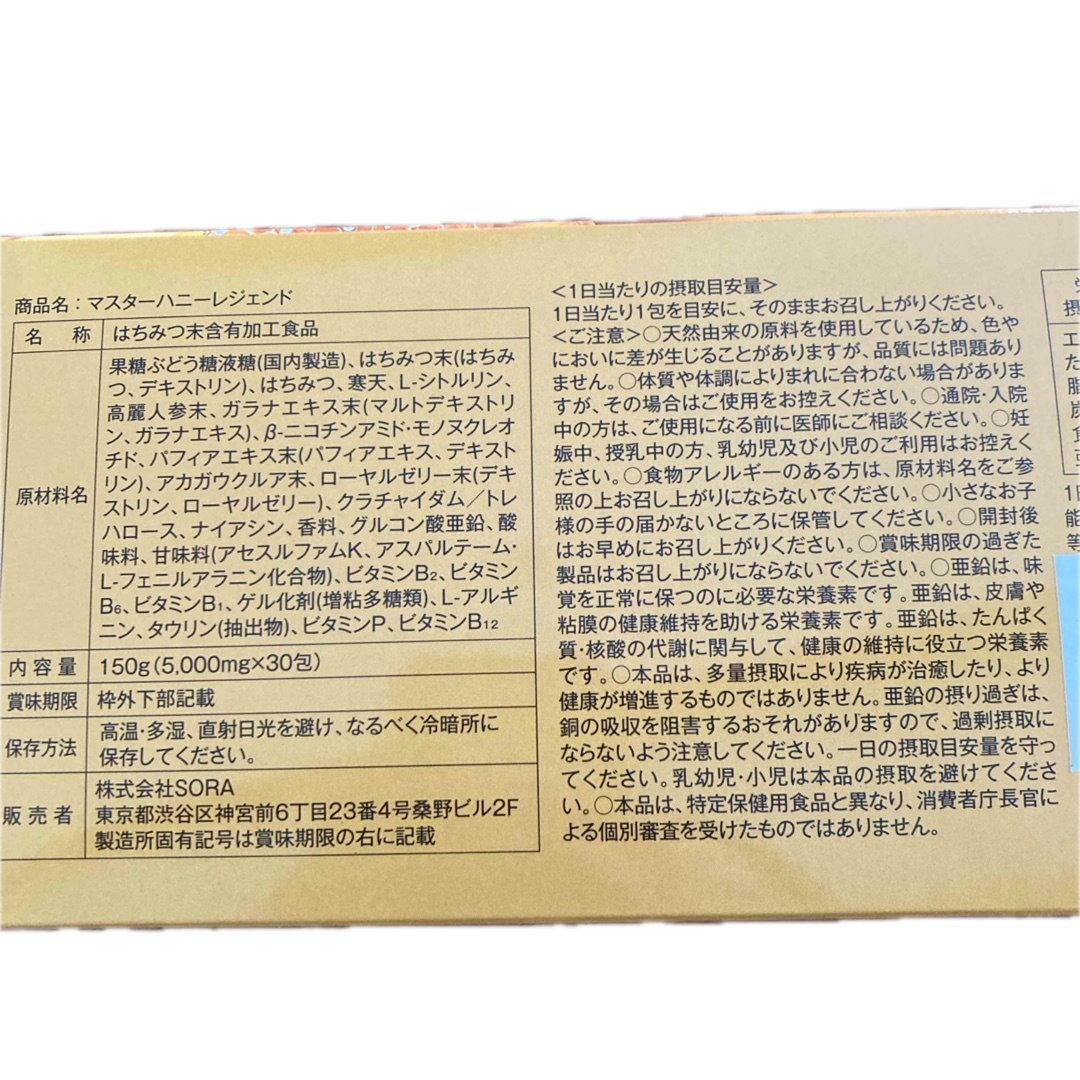 商品名：マスターハニーレジェンド
名　称
はちみつ末含有加工食品
原材料名
果糖ぶどう糖液糖(国内製造)、はちみつ末(はちみ
つ、デキストリン)、はちみつ、寒天、L-シトルリン、
高麗人参末、ガラナエキス末(マルトデキストリ
ン、ガラナエキス)、β-ニコチンアミド・モノヌクレオ
チド、パフィアエキス末(パフィアエキス、デキスト
リン)、アカガウクルア末、ローヤルゼリー末(デキ
ストリン、ローヤルゼリー)、クラチャイダム／トレ
ハロース、ナイアシン、香料、グルコン酸亜鉛、酸
味料、甘味料(アセスルファムK、アスパルテーム・
L-フェニルアラニン化合物)、ビタミンB2、ビタミン
B6、ビタミンB1、ゲル化剤(増粘多糖類)、L-アルギ
ニン、タウリン(抽出物)、ビタミンP、ビタミンB12
内容量
150g(5,000mg×30包)
賞味期限
枠外下部記載
保存方法
高温・多湿、直射日光を避け、なるべく冷暗所に
保存してください。
販売者
株式会社SORA
東京都渋谷区神宮前6丁目23番4号桑野ビル2F
製造所固有記号は賞味期限の右に記載
＜1日当たりの摂取目安量＞
1日当たり1包を目安に、そのままお召し上がりください。
＜ご注意＞○天然由来の原料を使用しているため、色や
においに差が生じることがありますが、品質には問題あり
ません。○体質や体調によりまれに合わない場合がありま
すが、その場合はご使用をお控えください。○通院・入院
中の方は、ご使用になる前に医師にご相談ください。○妊
娠中、授乳中の方、乳幼児及び小児のご利用はお控えく
ださい。○食物アレルギーのある方は、原材料名をご参
照の上お召し上がりにならないでください。○小さなお子
様の手の届かないところに保管してください。○開封後
はお早めにお召し上がりください。○賞味期限の過ぎた
製品はお召し上がりにならないでください。○亜鉛は、味
覚を正常に保つのに必要な栄養素です。亜鉛は、皮膚や
粘膜の健康維持を助ける栄養素です。亜鉛は、たんぱく
質・核酸の代謝に関与して、健康の維持に役立つ栄養素
です。○本品は、多量摂取により疾病が治癒したり、より
健康が増進するものではありません。亜鉛の摂り過ぎは、
銅の吸収を阻害するおそれがありますので、過剰摂取に
ならないよう注意してください。一日の摂取目安量を守っ
てください。乳幼児・小児は本品の摂取を避けてくださ
い。○本品は、特定保健用食品と異なり、消費者庁長官に
よる個別審査を受けたものではありません。
摂
エ
た
脂
炭
食
1日
能
等